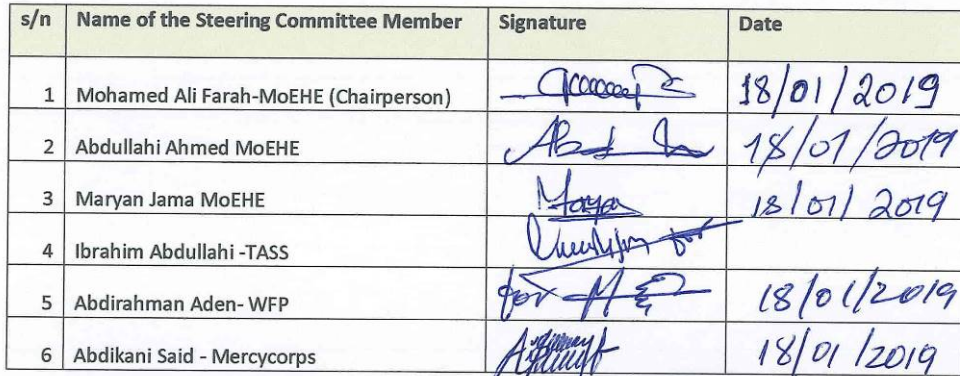 s/n Name of the Steering Committee Member Signature Date
1 Mohamed Ali Farah-MoEHE (Chairperson) 18/01/2019
2 Abdullahi Ahmed MoEHE 18/01/2019
3 Maryan Jama MoEHE Maryan 18/01/2019
4 Ibrahim Abdullahi -TASS
5 Abdirahman Aden- WFP for 18/01/2019
6 Abdikani Said - Mercycorps 18/01/2019